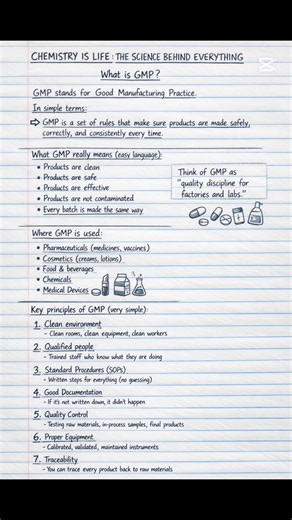 CHEMISTRY IS LIFE: THE SCIENCE BEHIND EVERYTHING
What is GMP?
GMP stands for Good Manufacturing Practice.
In simple terms:
⇨ GMP is a set of rules that make sure products are made safely,
correctly, and consistently every time.
What GMP really means (easy language):
• Products are clean
• Products are safe
• Products are effective
• Products are not contaminated
• Every batch is made the same way
Think of GMP as
"quality discipline for
factories and labs."
Where GMP is used:
• Pharmaceuticals (medicines, vaccines)
• Cosmetics (creams, lotions)
• Food & beverages
• Chemicals
• Medical Devices
Key principles of GMP (very simple):
1. Clean environment
- Clean rooms, clean equipment, clean workers
2. Qualified people
- Trained staff who know what they are doing
3. Standard Procedures (SOPs)
- Written steps for everything (no guessing)
4. Good Documentation
- If it's not written down, it didn't happen
5. Quality Control
- Testing raw materials, in-process samples, final products
6. Proper Equipment
- Calibrated, validated, maintained instruments
7. Traceability
- You can trace every product back to raw materials